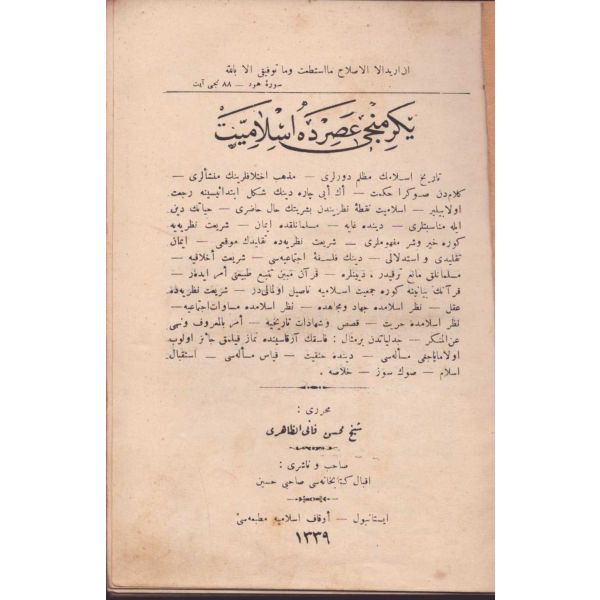 ان اريد الا الاصلاح ما استطعت وما توفيقى الا بالله
سورهٔ هود — ٨٨ نجى آيت
يكرمنجى عصرده اسلاميت
تاريخ اسلامك مظلم دورلرى — مذهب اختلافلرينك منشألرى —
كلام‌دن صوكرا حكمت — اك ايى چاره دينك شكل ابتدائيسينه رجعت
اولابيلير — اسلاميت نقطهٔ نظريندن بشريتك حال حاضرى — حياتك دين
ايله مناسبتلرى — دينده غايه — مسلمانلقده ايمان — شريعت نظريه‌يه
كوره خير وشر مفهوملرى — شريعت نظريه‌ده تقليدك موقعى — ايمان
تقليدى و استدلالى — دينك فلسفهٔ اجتماعيه‌سى — شريعت اخلاقيه —
مسلمانلق مانع ترقيدر ، دينلره — قرآن مبين تتبع طبيعتى أمر ايدەر —
قرآنك بياننه كوره جمعيت اسلاميه ناصيل اولمالى‌در — شريعت نظريه‌ده
عقل — نظر اسلامده جهاد ومجاهده — نظر اسلامده مساوات اجتماعيه —
نظر اسلامده حريت — قصص وشهادات تاريخيه — أمر بالمعروف ونهى
عن المنكر — جدلياتدن برمثال : فاسقك آرقاسينده نماز قيلمق جائز اولوب
اولاماياجغى مسأله‌سى — دينده حنفيت — قياس مسأله‌سى — استقبال
اسلام — صوك سوز — خلاصه .
محررى :
شيخ محسن فانى الظاهرى
صاحب و ناشرى :
اقبال كتابخانه‌سى صاحبى حسين
ايستانبول — أوقاف اسلاميه مطبعه‌سى
١٣٣٩